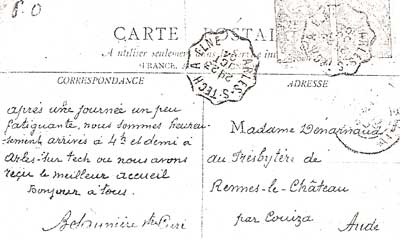 P.O
CARTE POSTALE
A utiliser seulement intérieur
FRANCE, A
ARLES-S-TECH A ELNE
CORRESPONDANCE
ADRESSE
après une journée un peu
fatiguante, nous sommes heureu-
sement arrivés à 4h et demi à
Arles-sur tech ou nous avons
reçu le meilleur accueil
Bonjour à tous.
Madame Denarnaud
au Presbytère de
Rennes-le-Château
par Couiza
Aude